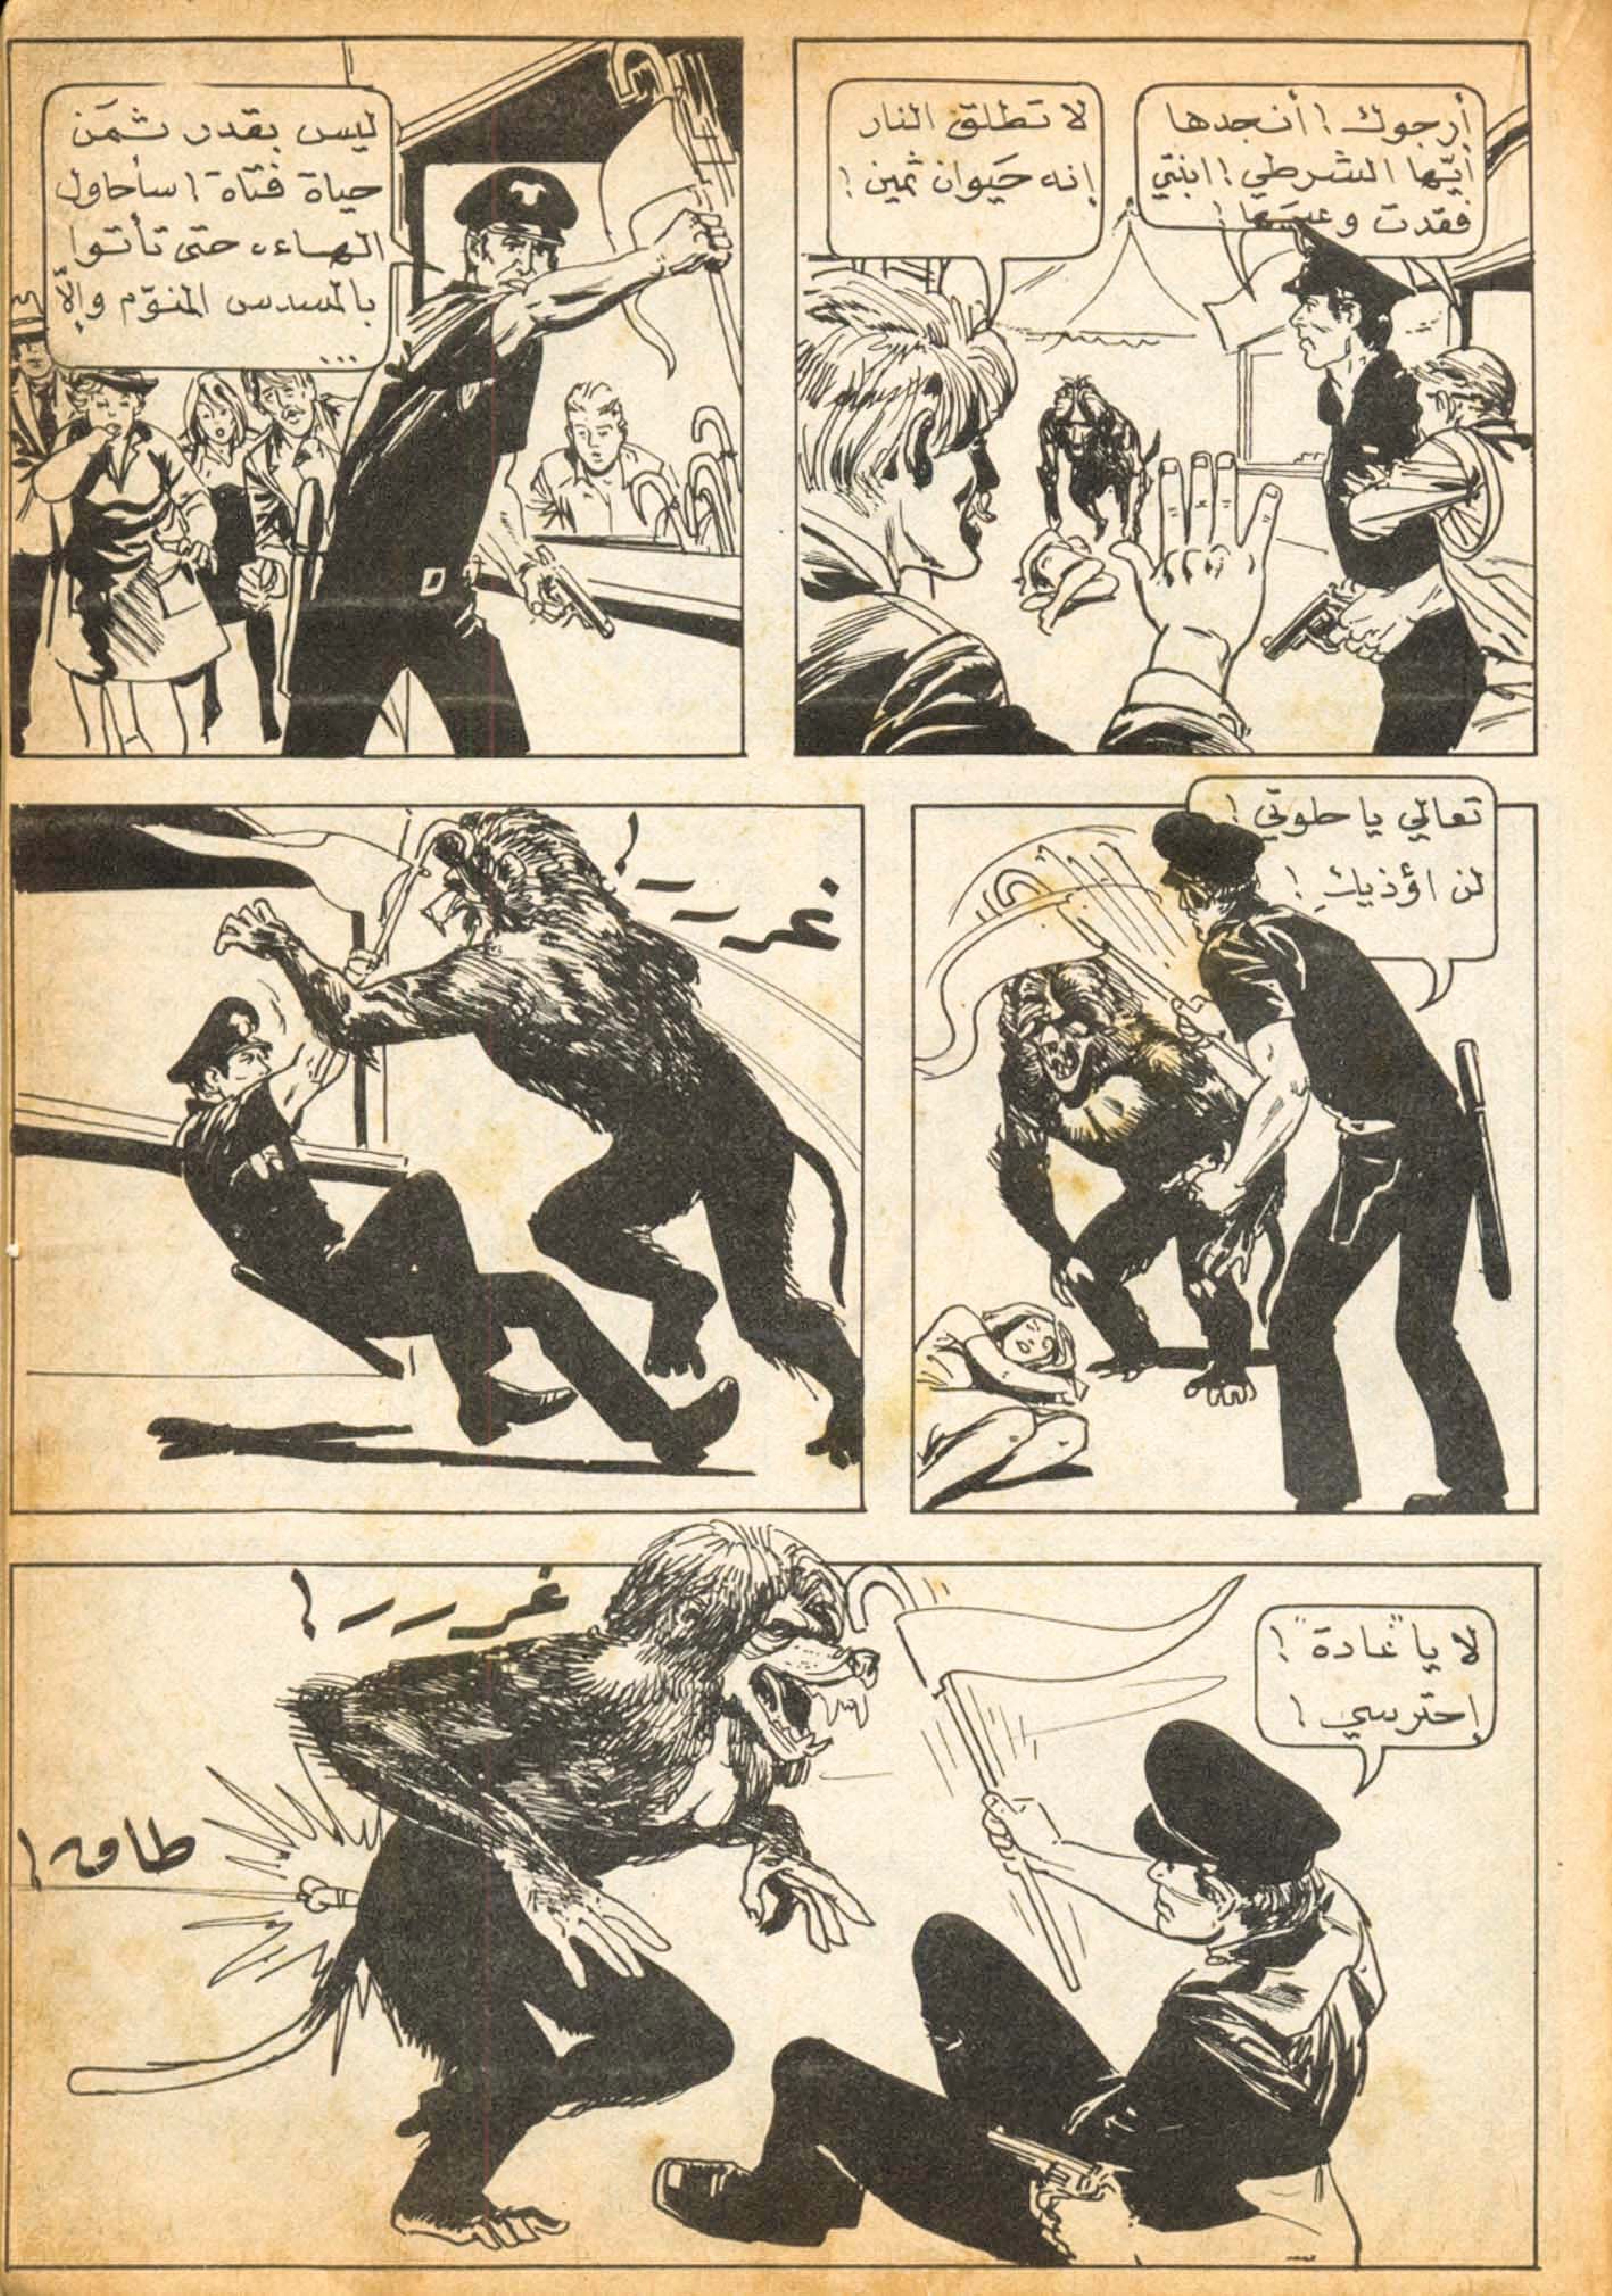 أرجوك! أنجدها
أيّها الشرطي! ابنتي
فقدت وعيها!
لا تطلق النار
إنه حَيوان ثمين!
ليس بقدر ثمَن
حياة فتاة! سأحاول
الهاءه حتى تأتوا
بالمسدس المنوّم وإلاّ
...
تعالي يا حلوتي!
لن اؤذيكِ!
غررر!
لا يا "غادة"!
إحترسي!
غررر!
طاق!